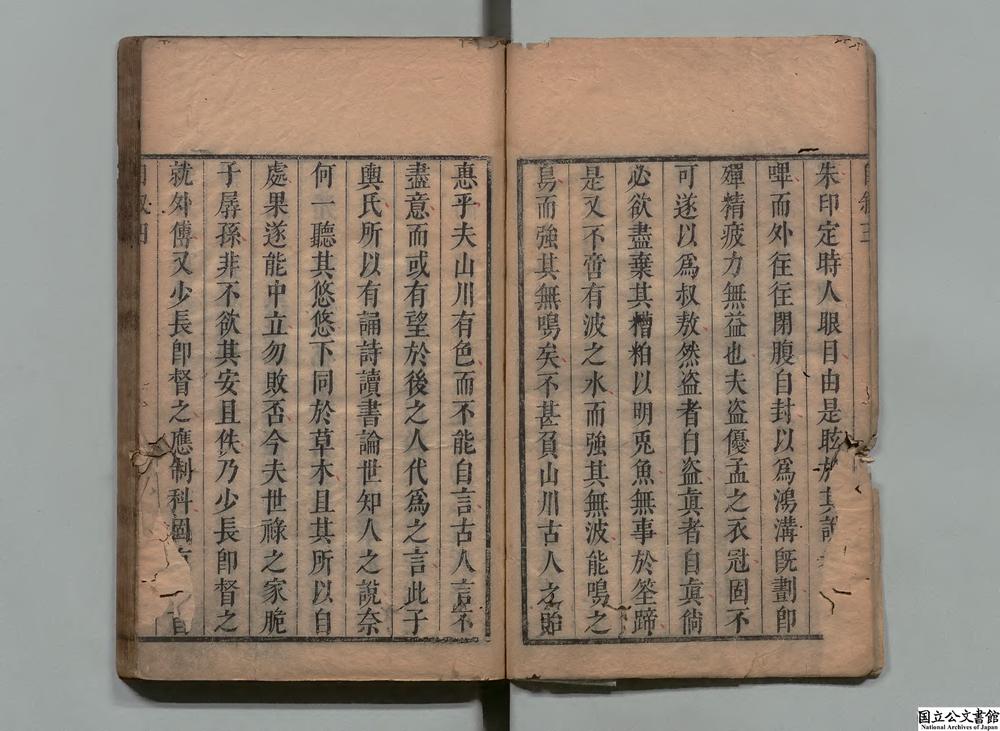 朱印定時人眼目由是眩於其說
嘽而外往往閉腹自封以爲鴻溝旣劃卽
殫精疲力無益也夫盗優孟之衣冠固不
可遂以爲叔敖然盗者自盗眞者自眞倘
必欲盡棄其糟粕以明兎魚無事於筌蹄
是又不啻有波之水而強其無波能鳴之
鳥而強其無鳴矣不甚負山川古人之貽
惠乎夫山川有色而不能自言古人言不
盡意而或有望於後之人代爲之言此子
輿氏所以有誦詩讀書論世知人之說奈
何一聽其悠悠下同於草木且其所以自
處果遂能中立勿敗否今夫世祿之家脆
子孱孫非不欲其安且佚乃少長卽督之
就外傅又少長卽督之應制科固
国立公文書館
National Archives of Japan